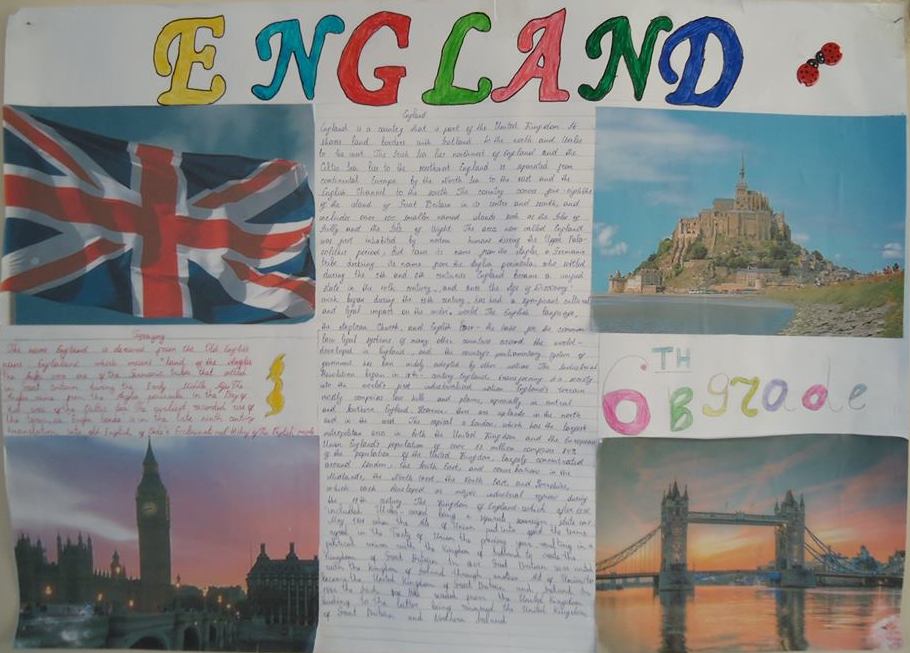 ENGLAND
England
England is a country that is part of the United Kingdom. It
shares land borders with Scotland to the north and Wales
to the west. The Irish Sea lies northwest of England and the
Celtic Sea lies to the southwest England is separated from
continental Europe by the North Sea to the east and the
English Channel to the south The country covers five-eighths
of the island of Great Britain in its centre and south, and
includes over 100 smaller named islands such as the Isles of
Scilly and the Isle of Wight. The area now called England
was first inhabited by modern humans during the Upper Palo-
eolithic period, but takes its name from the Angles a Germanic
tribe deriving its name from the Anglia peninsula, who settled
during the 5th and 6th centuries England became a unified
state in the 10th century, and since the Age of Discovery
which began during the 15th century, has had a significant cultural
and legal impact on the wider world The English language,
the Anglican Church, and English law - the basis for the common
law legal systems of many other countries around the world -
developed in England, and the country's parliamentary system of
government has been widely adopted by other nations The Industrial
Revolution began in 18th century England, transforming its society
into the world's first industrialised nation England's terrain
mostly comprises low hills and plains, especially in central
and Southern England. However there are uplands in the north
and in the west The capital is London, which has the largest
metropolitan area in both the United Kingdom and the European
Union England's population of over 53 million comprises 84%
of the population of the United Kingdom, largely concentrated
around London, the South East, and conurbations in the
Midlands, the North West, the North East, and Yorkshire,
which each developed as major industrial regions during
the 19th century The Kingdom of England which after 1535
included Wales ceased being a separate sovereign state on
May, 1707 when the Acts of Union put into effect the terms
agreed in the Treaty of Union the previous year resulting in a
political union with the Kingdom of Scotland to create the
Kingdom of Great Britain In 1801 Great Britain was united
with the Kingdom of Ireland through another Act of Union to
become the United Kingdom of Great Britain and Ireland In
the Irish Free State seceded from the United Kingdom
leading to the latter being renamed the United Kingdom
of Great Britain and Northern Ireland
The name England is derived from the Old English
name Englaland which means "land of the Angles
The Angles were one of the Germanic tribes that settled
in Great Britain during the Early Middle Ages The
Angles came from the Anglia peninsula in the Bay of
Kiel area of the Baltic Sea The earliest recorded use of
the term, as Engla londe is in the late ninth century
translation into Old English of Bede's Ecclesiastical History of the English people
6TH B grade